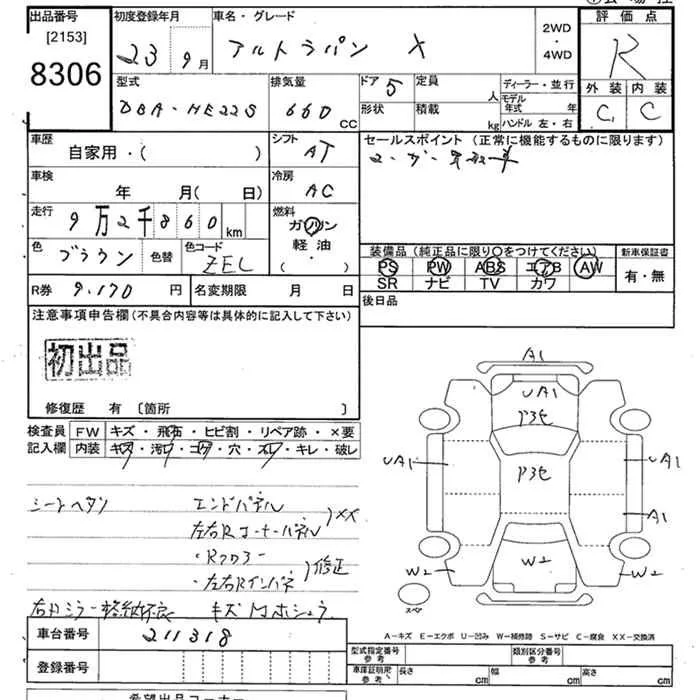 出品番号 初度登録年月 車名・グレード 評価点
[2153]
8306
23年 9月 アルトラパン X 2WD・4WD R
外装 内装
C C
型式 排気量 ドア 5 定員 人 ディーラー・並行
DBA-HE22S 660 CC 形状 積載 kg モデル年式 年
ハンドル 左・右
車歴 シフト セールスポイント (正常に機能するものに限ります)
自家用・( ) AT
車検 冷房
年 月(日) AC
走行 燃料
9万2千860 km ガソリン
軽油
( )
色 ブラウン 色替 色コード ZEL
装備品 (純正品に限り○をつけてください) 新車保証書
PS PW ABS エアB AW 有・無
SR ナビ TV カワ
R券 9,170 円 名変期限 月 日
後日品
注意事項申告欄 (不具合内容等は具体的に記入して下さい)
初出品
修復歴 有 [箇所 ]
検査員 FW キズ・飛石・ヒビ割・リペア跡・×要
記入欄 内装 キズ・汚れ・コゲ・穴・スレ・キレ・破レ
シートヘタリ エンドパネル
左右Rコーナーパネル XX
・Rフロアー
・左右Rインパネ 修正
右ドミラー格納不良 キズ
A1
UA1
P3セ
UA1 P3セ UA1
A1
W2 W2 W2
スペア
A-キズ E-エクボ U-凹み W-補修跡 S-サビ C-腐食 XX-交換済
車台番号 211318
型式指定番号 参考 類別区分番号 参考
登録番号
車庫証明用 参考 長さ cm 幅 cm 高さ cm
希望出品コーナー